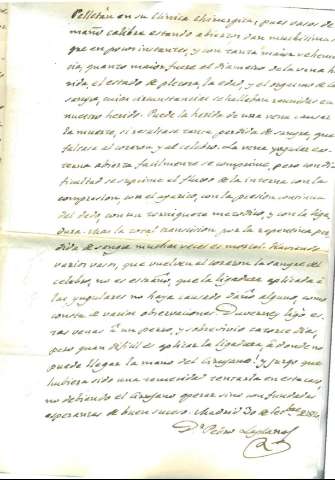 Pelletan en su Clinica Chirurgica; pues vasos de
tamaño calibre estando abiertos dan muchisima
que en pocos instantes, y con tanta maior vehemen
cia, quanto maior fuere el diametro de la vena he
rida, el estado de plecora, la edad y el orgasmo de la
sangre, cuias circunstancias se hallaban reunidas en
nuestro herido. Puede la herida de una vena causar
la muerte, si resulta tanta perdida de sangre, que
falte al corazon y al celebro. La vena yugular es
terna abierta facilmente se comprime, pero con di
ficultad se suprime el fluxo de la interna con la
compresion, por el aparato, con la presion continua
del dedo, con un torniquete metodico, y con la liga
dura: mas la total transicion, por la repentina per
dida de sangre muchas veces es mortal. Haviendo
varios vasos, que vuelven al corazon la sangre del
celebro, no es estraño, que la ligadura aplicada à
las yugulares no haya causado daño alguno como
consta de varias observaciones. Duverney ligó es
tas venas à un perro, y sobrevivió catorce dias,
pero quan dificil es aplicar la ligadura à donde no
puede llegar la mano del Cirujano! y juzgo que
hubiera sido una temeridad tentarla en este caso,
no debiendo el Cirujano operar sino con fundadas
esperanzas de buen suceso. Madrid 30 de
Dr. Pedro